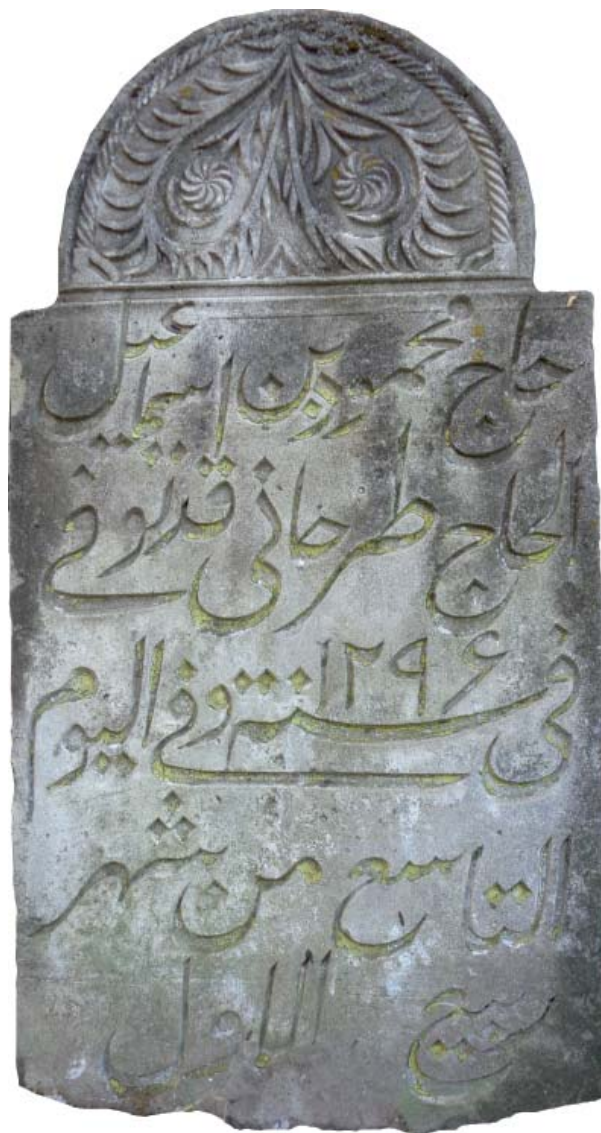 حاج محمود بن اسماعيل
الحاج طرخانی قد توفی
فی سنة ١٢٩۶ وفی اليوم
التاسع من شهر
ربيع الاول